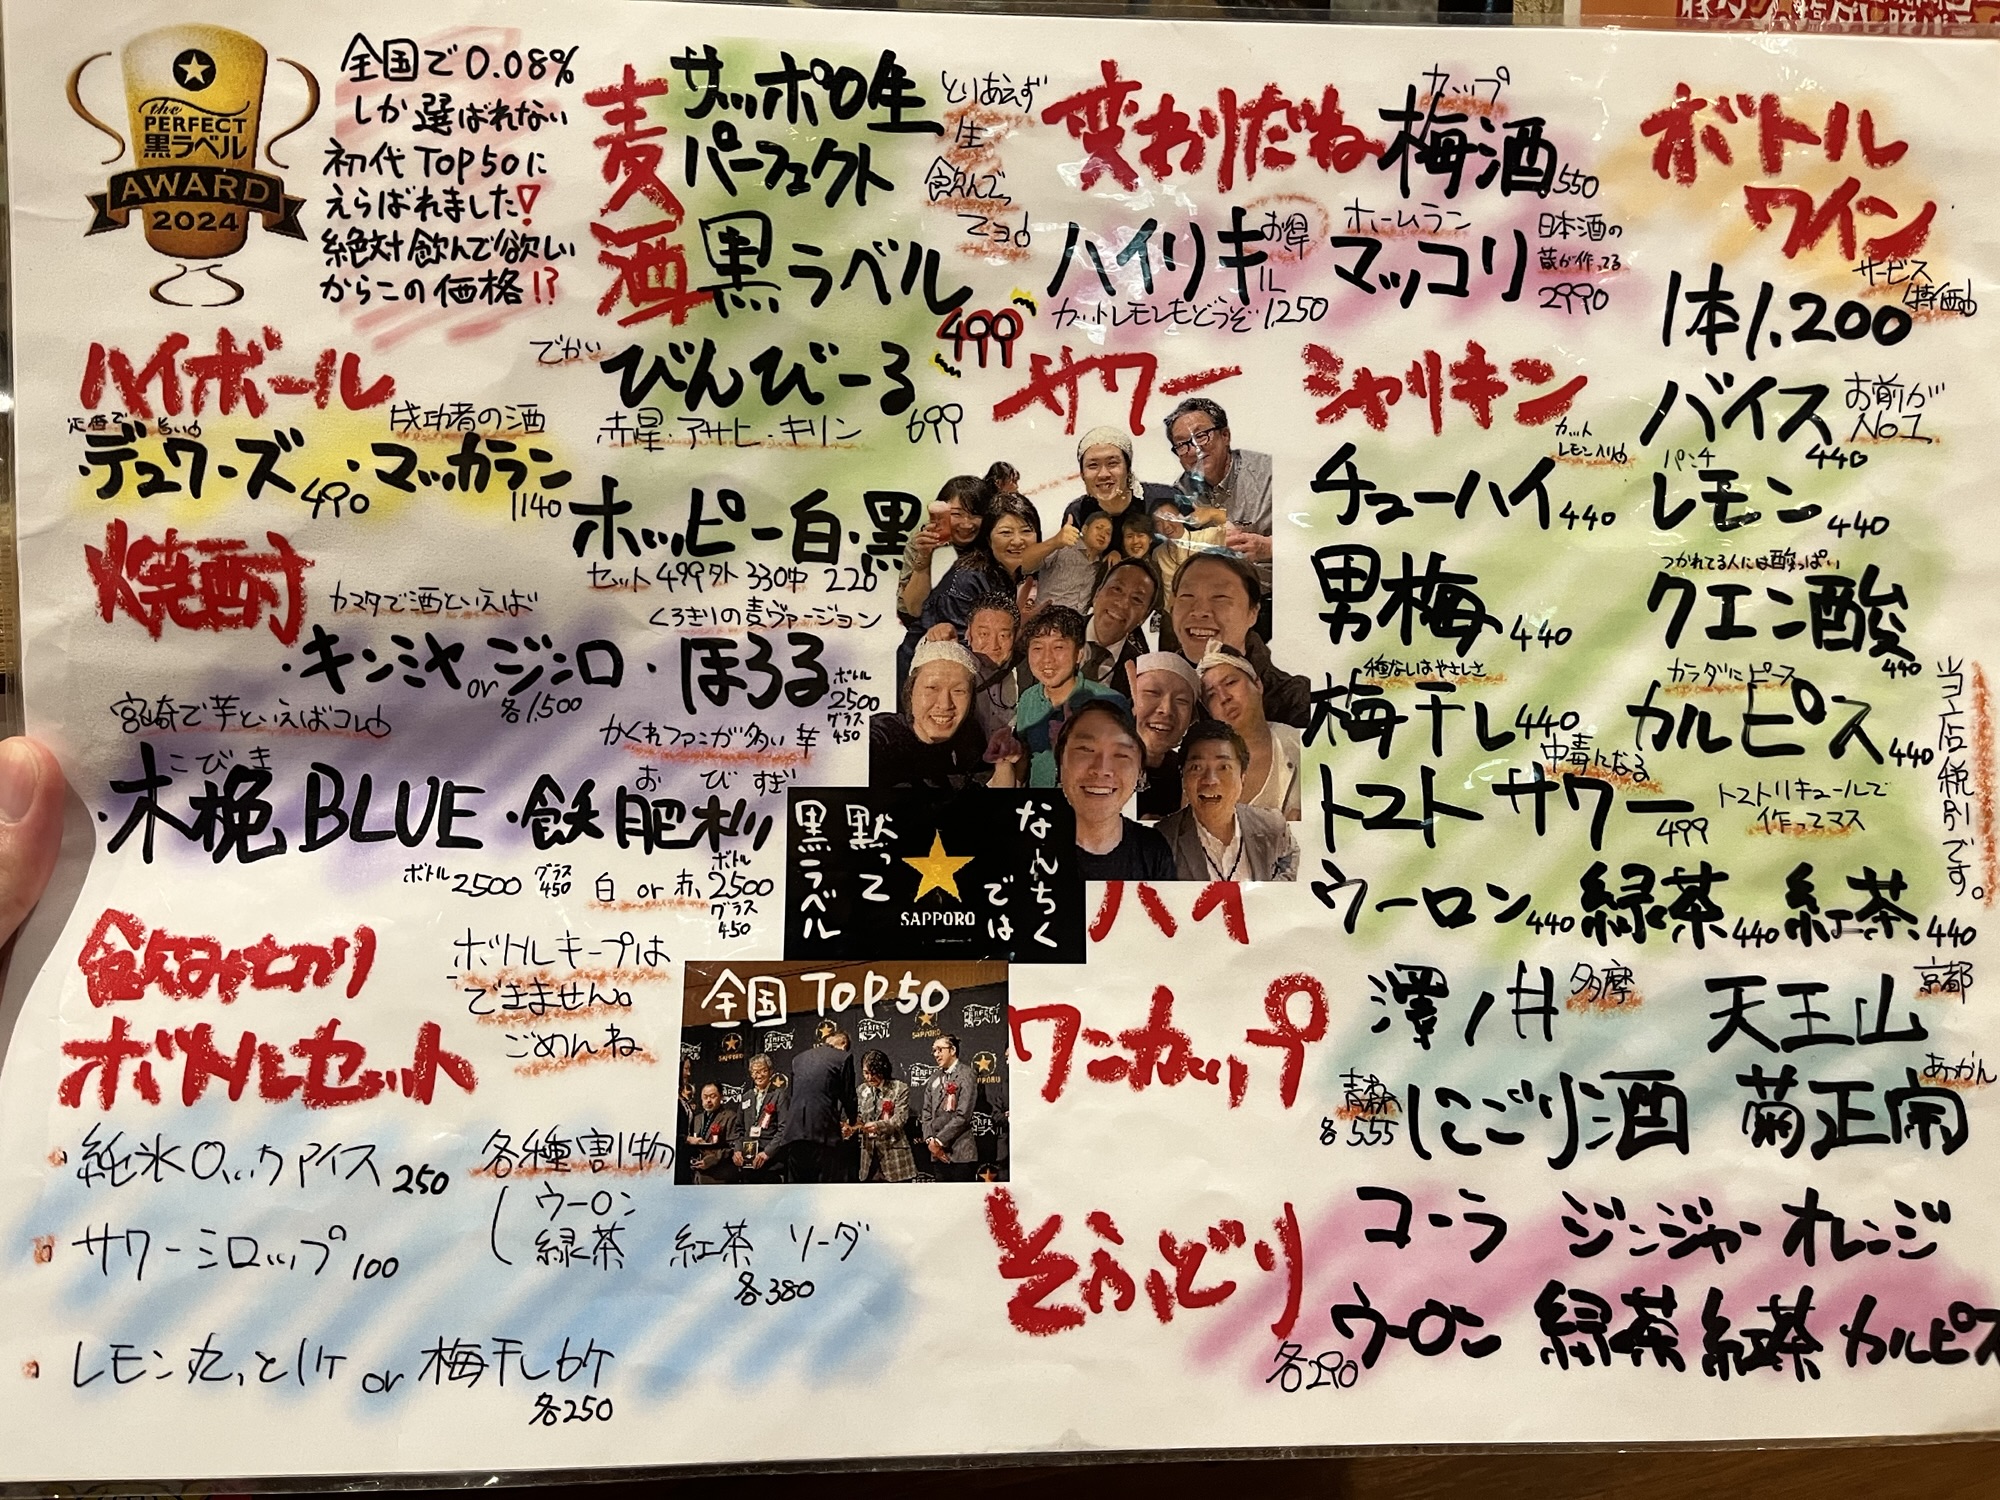 the
PERFECT
黒ラベル
AWARD
2024
全国で0.08%
しか選ばれない
初代TOP50に
えらばれました!
絶対飲んで欲しい
からこの価格!?
麦酒
サッポロ生
パーフェクト
黒ラベル
499
とりあえず
生
飲んで。
でかい
びんびーる
赤星・アサヒ・キリン 699
ホッピー白・黒
セット499 外330 中220
変わりだね
カップ
梅酒 550
ハイリキ
お得
1L
カットレモンもどうぞ 1,250
ホームラン
マッコリ
日本酒の
蔵が作ってる
2990
ボトル
ワイン
サービス
特価
1本1,200
ハイボール
成功者の酒
・デュワーズ490・マッカラン
1140
焼酎
カマタで酒といえば
・キンミヤorジンロ
各1,500
くろきりの麦ヴァージョン
・ほろる
ボトル
2500
グラス
450
宮崎で芋といえばコレ
こびき
・木挽BLUE
ボトル2500
グラス
450
かくれファンが多い芋
おびすぎ
・飫肥杉
白or赤
ボトル
2500
グラス
450
サワー
シャリキン
カット
レモン入り
チューハイ 440
バイス
440
お前が
No1
パンチ
レモン 440
男梅 440
つかれてる人には酸っぱい
クエン酸
440
種なしはやさしさ
梅干し 440
カラダにピース
カルピス 440
中毒になる
トマトサワー
499
トマトリキュールで
作ってマス
ハイ
ウーロン 440 緑茶 440 紅茶 440
当店税別です。
なんちく
では
黙って
黒ラベル
SAPPORO
全国TOP50
飲みきり
ボトルセット
ボトルキープは
できません。
ごめんね
純氷ロックアイス 250
サワーシロップ 100
レモン丸っと1ケ or 梅干し6ケ
各250
各種割物
ウーロン
緑茶 紅茶 ソーダ
各380
ワンカップ
澤ノ井 多摩
天王山 京都
各555
にごり酒 菊正宗
そふどり
各290
コーラ ジンジャー オレンジ
ウーロン 緑茶 紅茶 カルピス